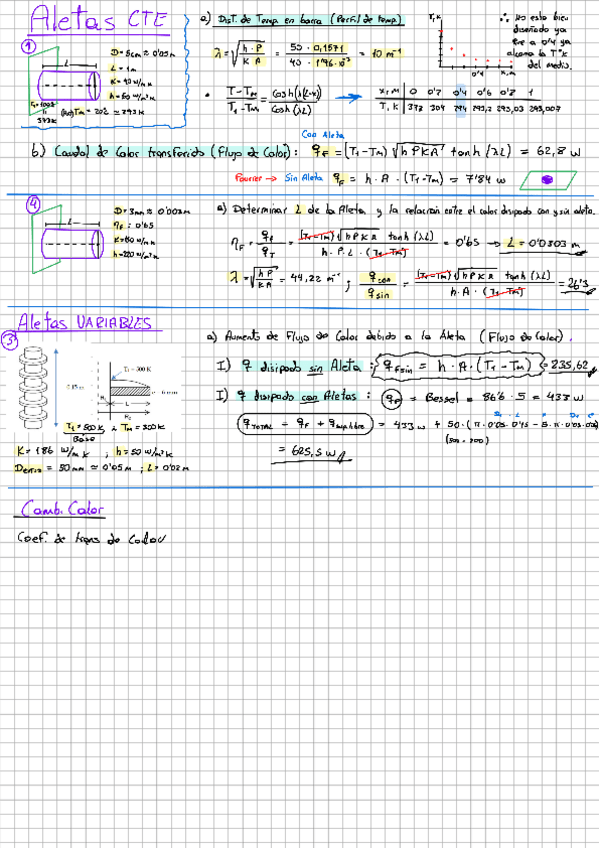 Aletas CTE
1
L
D = 5cm ≈ 0'05m
L = 1m
K = 40 W/m K
h = 50 W/m²K
TM = 20º ≈ 293K
373K
a) Dist. de Temp. en barra (Perfil de temp.)
λ = √(h·P / K A) = √(50 · 0,1571 / 40 · 1'96·10⁻³) = 10 m⁻¹
T - TM / T1 - TM = Cosh(λ(L-x)) / Cosh(λL) →
x, m 0 0'2 0'4 0'6 0'8 1
T, K 373 304 294 293,2 293,03 293,007
T, K
0'4 x, m
∴ No esta bien
diseñado ya
que a 0'4 ya
alcanza la Tª
del medio.
Con Aleta
b) Caudal de Calor transferido (Flujo de Calor): qF = (T1-TM) √hPKA tanh(λL) = 62,8 W
Fourier → Sin Aleta qF = h · A · (T1-TM) = 7'84 W
4
L
D = 3mm ≈ 0'003m
ηF: 0'65
h = 220 W/m²K
a) Determinar L de la Aleta y la relacion entre el calor disipado con y sin aleta.
ηF = qF / qT = (T1-TM) √hPKA tanh(λL) / h·P·L·(T1-TM) = 0'65 → L = 0'0303 m
λ = √(hP / KA) = 44,22 m⁻¹ ; q con / q sin = (T1-TM) √hPKA tanh(λL) / h·A·(T1-TM) = 26'3
Aletas VARIABLES
3
T1 = 500 K
L
T1 = 500K, TM = 300K
Base
K = 186 W/m K ; h = 50 W/m²K
= 50 mm ≈ 0'05m ; L = 0'02m
a) Aumento de Flujo de Calor debido a la Aleta (Flujo de Calor).
I) q disipado sin Aleta: qF sin = h · A · (T1 - TM) = 235,62
I) q disipado con Aletas: qF = Bessel = 86'6 · 5 = 433 W
qTOTAL = qF + q sup. libre = 433 W + 50 · (π · 0'05 · 0'15 - 5 · π · 0'05 ·
(500 - 300)
= 625,5 W
Camb. Calor
Coef. de trans de Calor